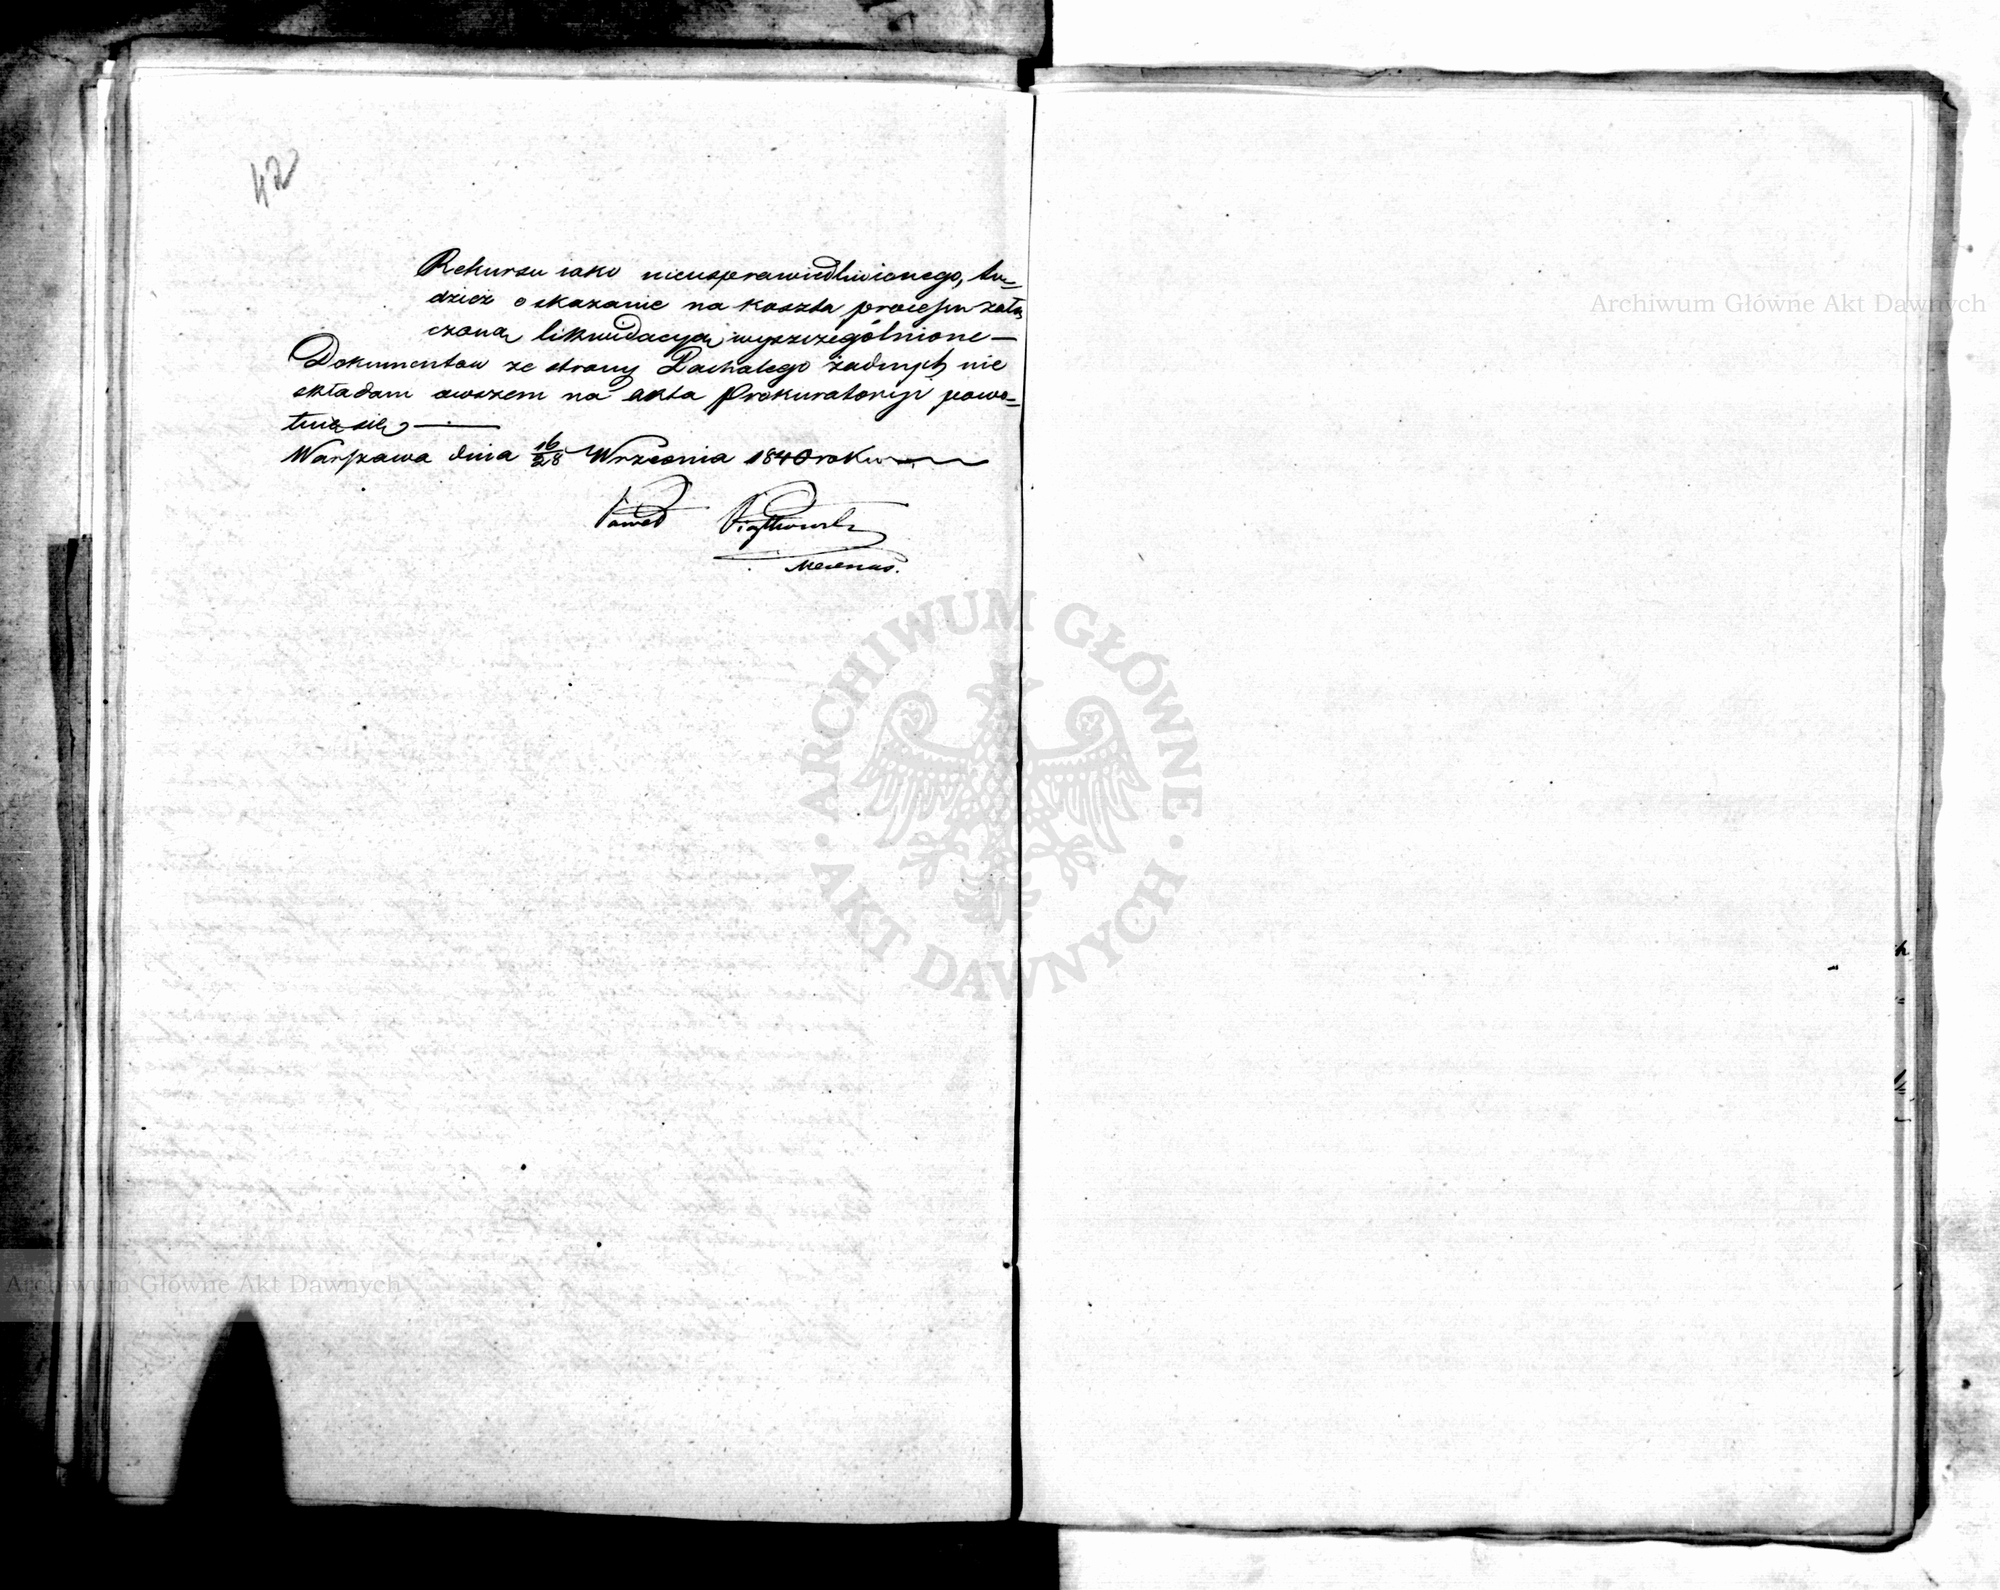 42
Rekursu iako nieusprawiedliwionego, tu=
dzież o skazanie na koszta processu załą
czoną likwidacyą wyszczególnione—
Dokumentow ze strony Pachalego żadnych nie
składam owszem na akta Prokuratoryi powo=
łuię się —
Warszawa dnia 16/28 Września 1840 roku
Paweł Piątkowski
Mecenas.
Archiwum Główne Akt Dawnych
ARCHIWUM GŁÓWNE AKT DAWNYCH
Archiwum Główne Akt Dawnych